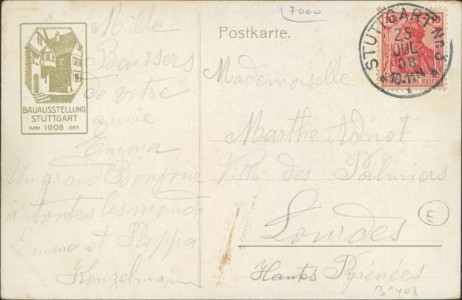 7000
Postkarte.
STUTTGART Nr. 3
25
JUL
08
BAUAUSSTELLUNG
STUTTGART
JUNI 1908 OKT.
Mille
Baisers
de votre
amie
Emma
Un grand Bonjour
à toutes les monde
Emma et Pappa
Mademoiselle
Marthe
Villa des Palmiers
Lourdes
Hautes Pyrénées
E